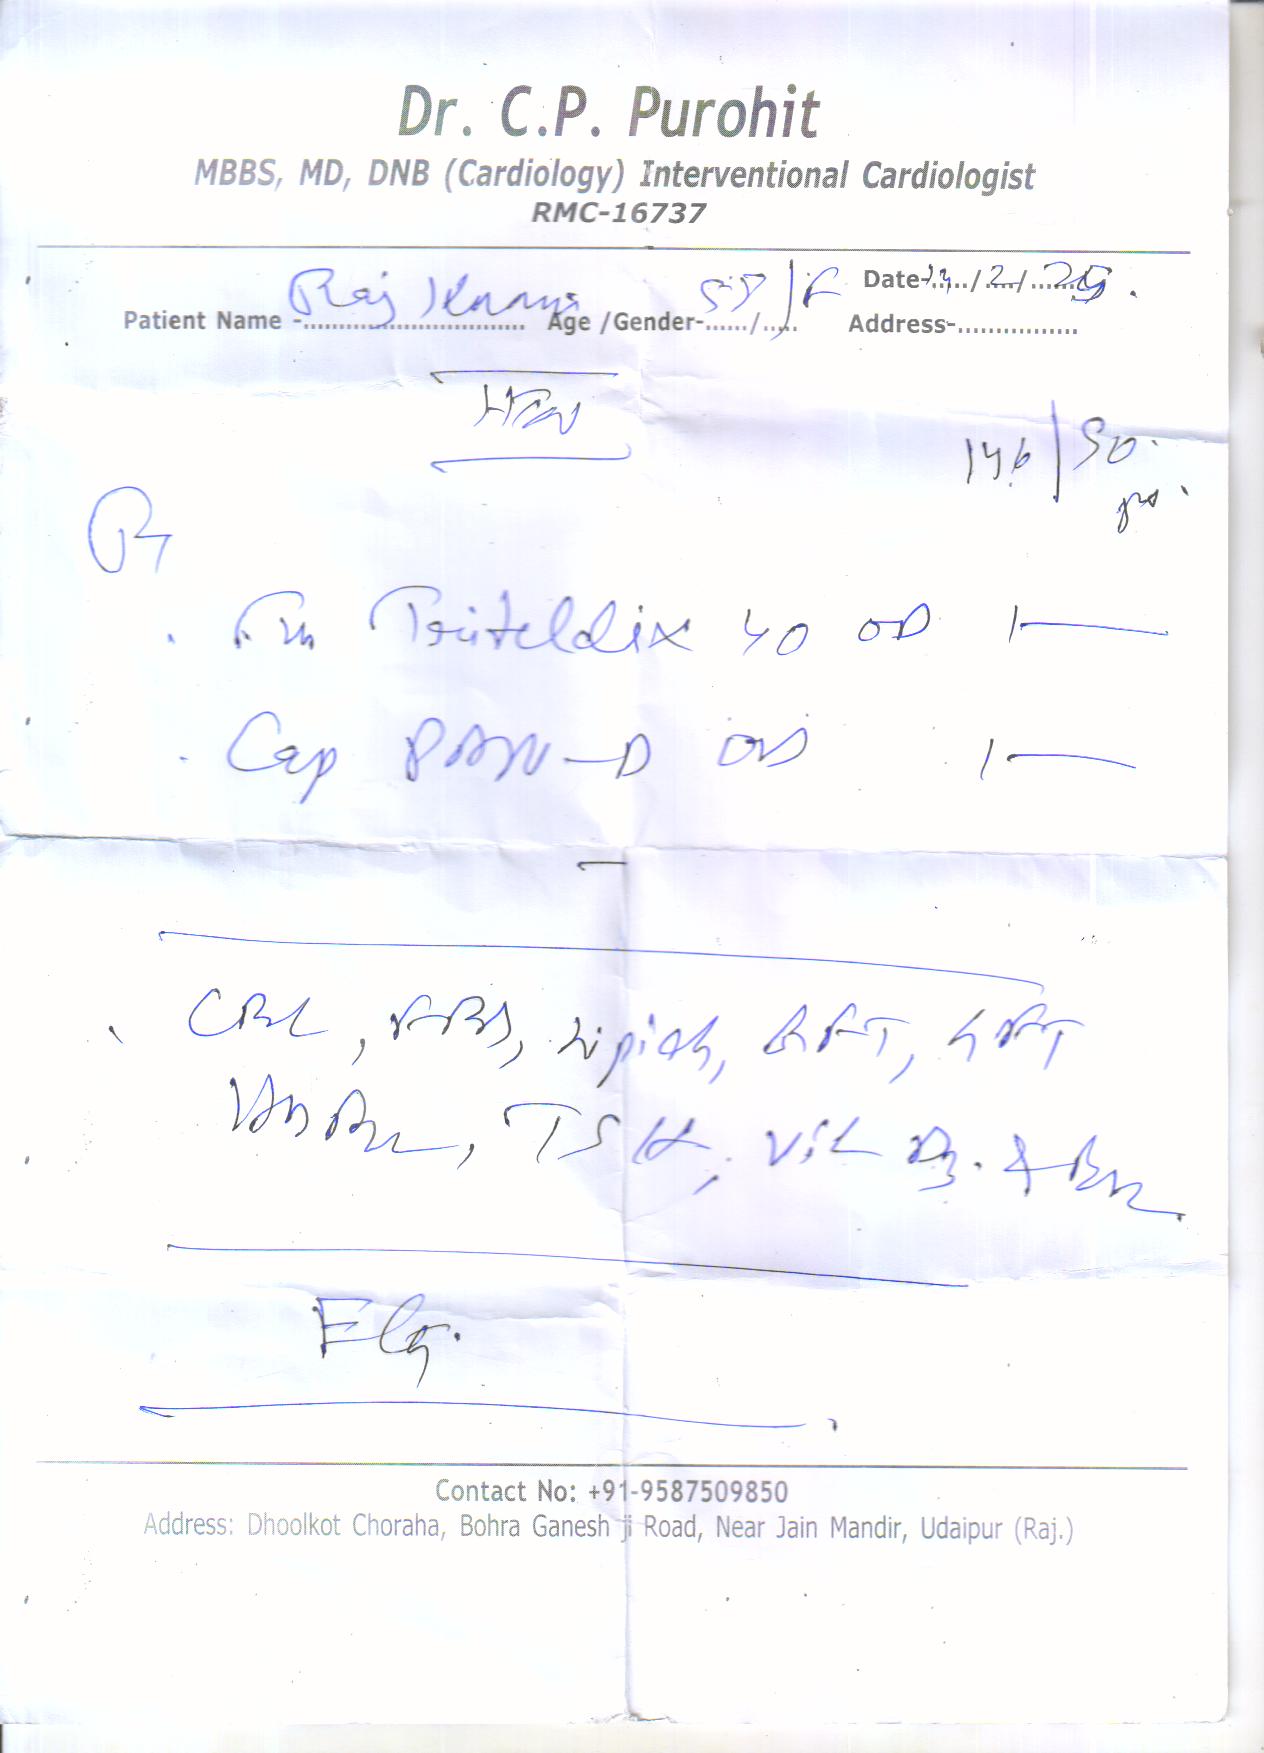 Dr. C.P. Purohit
MBBS, MD, DNB (Cardiology) Interventional Cardiologist
RMC-16737
Patient Name - Raj Age /Gender- / F Date- /2/
Address-
HTN
146/90
Rx
40 OD 1
Cap PAN-D OD 1
CBC, RBS, Lipids, RFT, LFT
HbA1c, TSH, Vit D3 & B12
ECG.
Contact No: +91-9587509850
Address: Dhoolkot Choraha, Bohra Ganesh ji Road, Near Jain Mandir, Udaipur (Raj.)